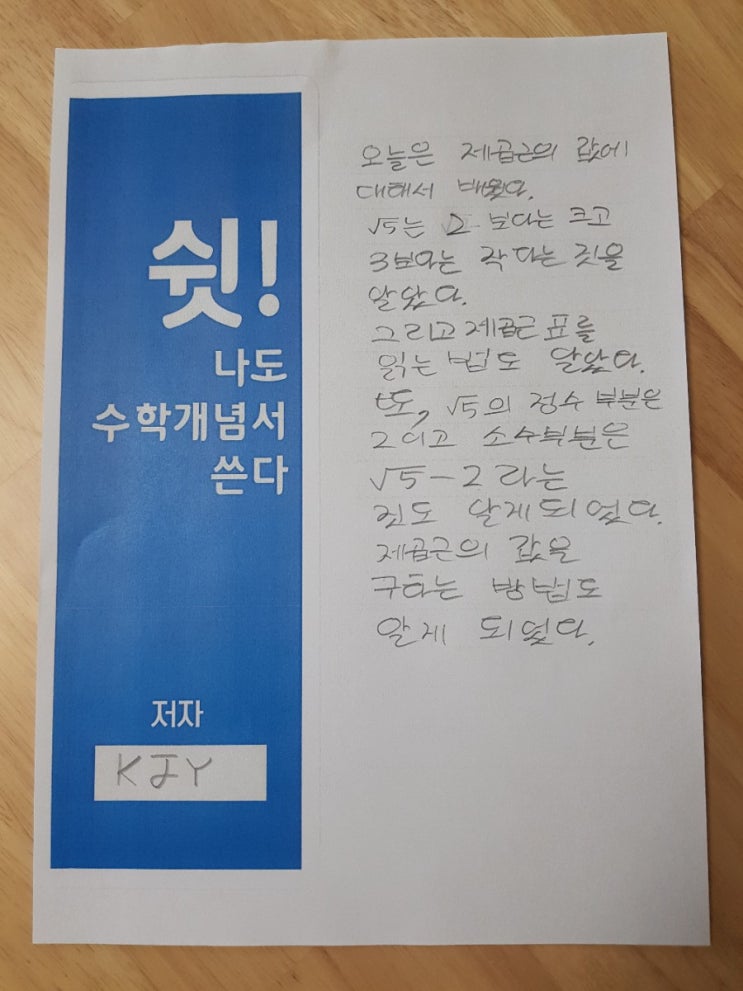 쉿!
나도
수학개념서
쓴다
저자
KJY
오늘은 제곱근의 값에
대해서 배웠다.
√5는 2 보다는 크고
3보다는 작다는 것을
알았다.
그리고 제곱근 표를
읽는 법도 알았다.
또, √5의 정수 부분은
2이고 소수부분은
√5-2 라는
것도 알게 되었다.
제곱근의 값을
구하는 방법도
알게 되었다.